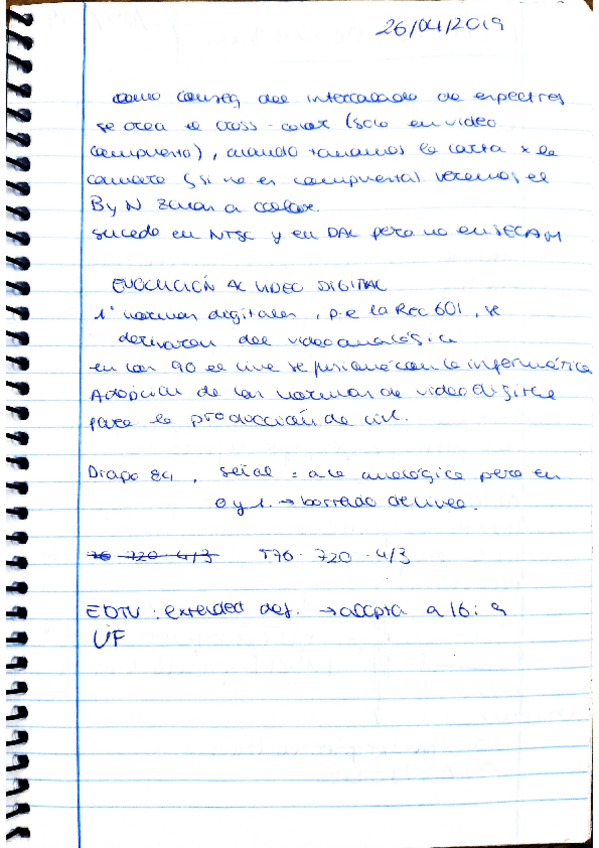 26/04/2019
como conseq del intercalado de espectros
se crea el cross-color (solo en video
compuesto), cuando tomamos la carta x la
camara (si no es compuesta) veremos el
B y N zonas a color.
sucede en NTSC y en PAL pero no en SECAM
EVOLUCIÓN AL VIDEO DIGITAL
1° normas digitales, p.e la Rec 601, se
derivaron del video analógico
en los 90 el cine se fusionó con la informática
Adopción de las normas de video digital
para la producción de cine.
Diapo 84, señal = a la analógica pero en
0 y 1. → borrado de linea.
76 720 4/3 576 · 720 · 4/3
EDTV : extended def. → adopta a 16:9
UF